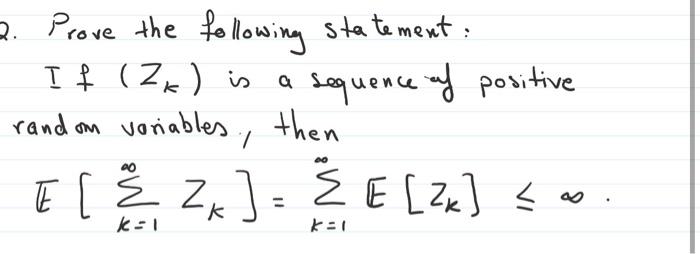 2. Prove the following statement:
If (Z_k) is a sequence of positive
random variables, then
𝔼 [ ∑_{k=1}^{∞} Z_k ] = ∑_{k=1}^{∞} 𝔼 [Z_k] ≤ ∞.